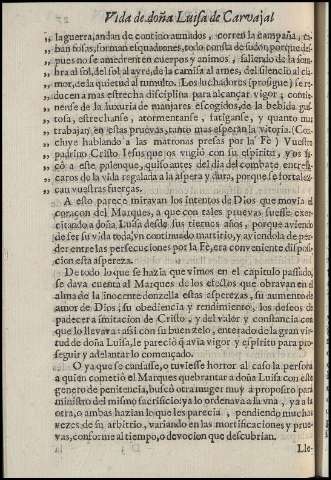 Vida de doña Luisa de Carvajal
„ la guerra, andan de contino armados, corren la campaña, ca-
„ ban fosas, forman esquadrones, todo consta de sudor, porque des-
„ pues no se amedrenten cuerpos y animos, saliendo de la som-
„ bra al sol, del sol al ayre, de la camisa al arnes, del silencio al cla-
„ mor, de la quietud al tumulto. Los luchadores (prosigue) se re-
„ ducen a mas estrecha diciplina para alcançar vigor, contie-
„ nense de la luxuria de manjares escogidos, de la bebida gus-
„ tosa, estrechanse, atormentanse, fatiganse, y quanto mas
„ trabajan en estas pruevas, tanto mas esperan la vitoria. (Con-
„ cluye hablando a las matronas presas por la Fè) Vuestro
„ padrino Cristo Iesus que os vngio con su espiritu, y os sa-
„ cò a este palenque, quiso antes del dia del combate entresa-
„ caros de la vida regalada a la aspera y dura, porque se fortalez-
„ can vuestras fuerças.
A esto parece miravan los intentos de Dios que movia el
coraçon del Marques, a que con tales pruevas fuesse exer-
citando a doña Luisa desde sus tiernos años, porque aviendo
de ser su vida toda vn continuado martirio, y aviendola de pe-
der entre las persecuciones por la Fè, era conveniente disposi-
cion esta aspereza.
De todo lo que se hazia que vimos en el capitulo passado,
se dava cuenta al Marques de los efectos que obravan en el
alma de la inocente donzella estas asperezas, su aumento de
amor de Dios, su obediencia y rendimiento, los deseos de
padecer a imitacion de Cristo, y del valor y constancia con
que lo llevava: assi con su buen zelo, enterado de la gran vir-
tud de doña Luisa, le pareciò avia vigor y espiritu para pro-
seguir y adelantar lo començado.
O ya que se cansasse, o tuviesse horror al caso la persona
a quien cometiò el Marques quebrantar a doña Luisa con este
genero de penitencia, buscò otra muger muy a proposito para
ministro del mismo sacrificio: ya lo ordenava a la vna, ya a la
otra, o ambas hazian lo que les parecia, pendiendo muchas
vezes de su arbitrio, variando en las mortificaciones y prue-
vas, conforme al tiempo, o devocion que descubrian.
Lle-